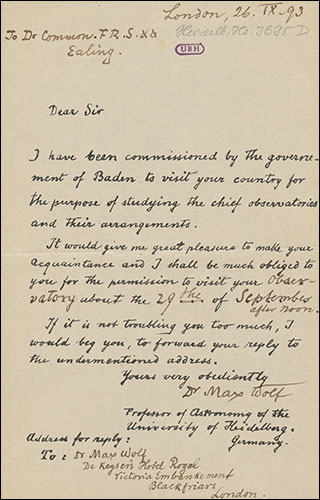 London, 26. IX. 93
Heidelb. Hs. 3695 D
To Dr Common. F.R.S. &&
Ealing.
UBH
Dear Sir
I have been commissioned by the governe-
ment of Baden to visit your country for
the purpose of studying the chief observatories
and their arrangements.
It would give me great pleasure to make your
acquaintance and I shall be much obliged to
you for the permission to visit your Obser-
vatory about the 29the of September
after noon.
If it is not troubling you too much, I
would beg you, to forward your reply to
the undermentioned address.
Yours very obediently
Dr Max Wolf
Professor of Astronomy of the
University of Heidelberg.
Germany.
Address for reply:
To: Dr Max Wolf
De Keyser's Hotel Royal
Victoria Embankement
Blackfriars
London.